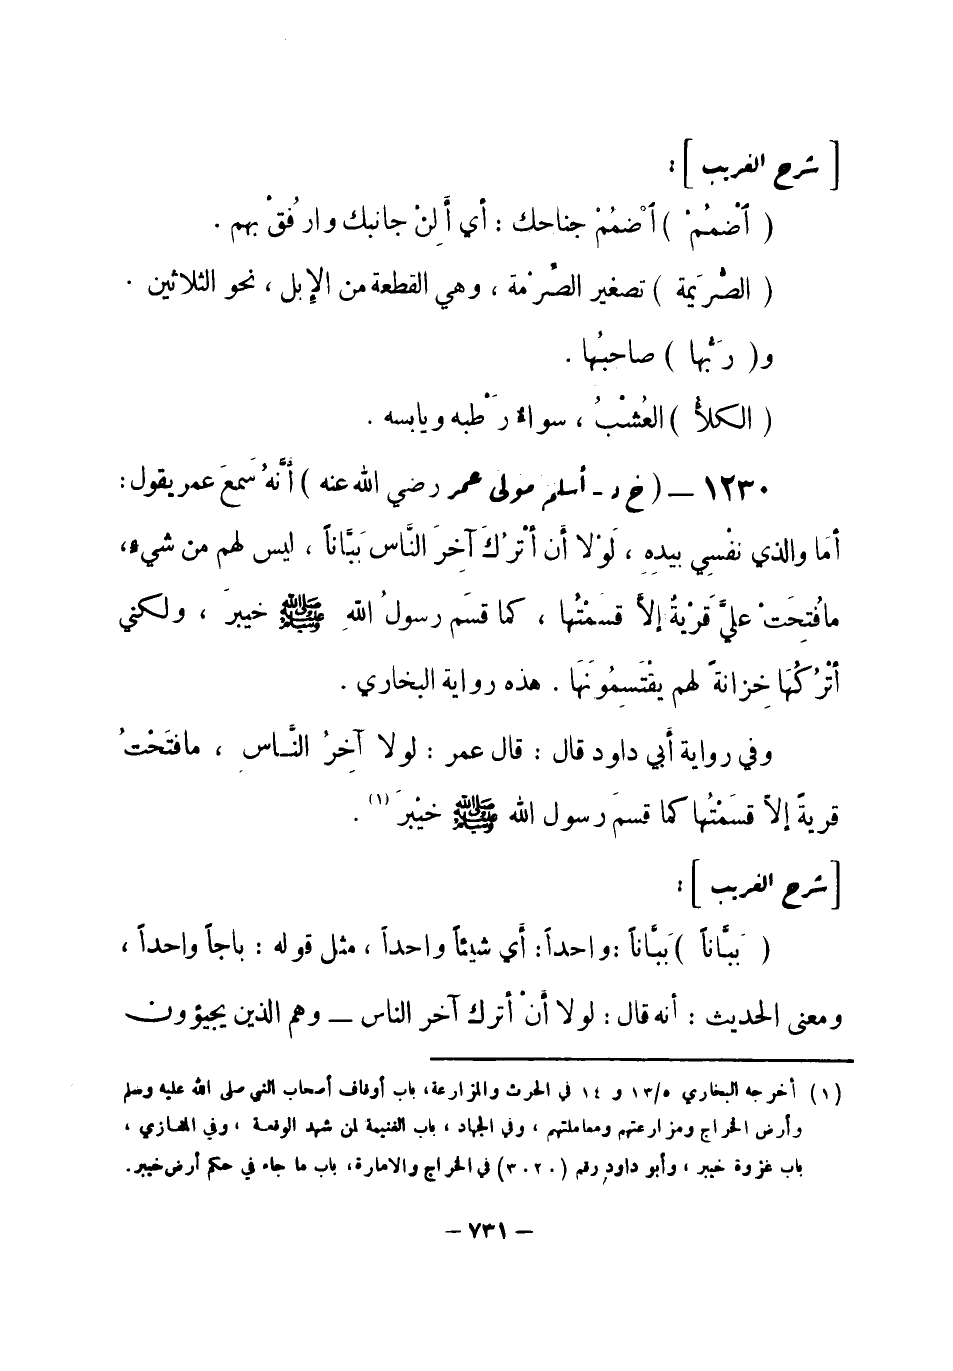 [ شرح الغريب ] :
( اَضْمُمْ ) اَضمُمْ جناحك : أي أَلِنْ جانبك وارفُقْ بهم .
( الصُّرَيمة ) تصغير الصُّرْمة ، وهي القطعة من الإبل ، نحو الثلاثين .
و( رَبُّها ) صاحبُها .
( الكلأُ ) العُشْبُ ، سواءٌ رَطْبه ويابسه .
١٢٣٠ – ( خ د - أسلم مولى عمر رضي الله عنه ) أَنَّهُ سَمِعَ عمر يقول :
أمَا والذي نفْسِي بيدِهِ ، لَوْلا أَن أَتْرُكَ آخِرَ النَّاس بَبَّاناً ، ليس لهم من شيءٍ ،
ما فُتِحَتْ عليَّ قَرْيةٌ إلاَّ قسَمْتُها ، كما قسَم رسولُ اللهِ ﷺ خيبرَ ، ولكني
أَتْرُكُهَا خِزانةً لهم يقْتَسِمُونَهَا . هذه رواية البخاري .
وفي رواية أبي داود قال : قال عمر : لولا آخِرُ النَّاسِ ، ما فتَحْتُ
قريةً إلاّ قسَمْتُها كما قسمَ رسول الله ﷺ خيْبرَ (١) .
[ شرح الغريب ] :
( بَبَّاناً ) بَبَّاناً : واحداً : أي شيئاً واحداً ، مثل قوله : باجاً واحداً ،
ومعنى الحديث : أنه قال : لولا أَنْ أترك آخر الناس – وهم الذين يجيؤون
(١) أخرجه البخاري ٥/١٣ و ١٤ في الحرث والمزارعة ، باب أوقاف أصحاب النبي صلى الله عليه وسلم
وأرض الخراج ومزارعتهم ومعاملتهم ، وفي الجهاد ، باب الغنيمة لمن شهد الوقعة ، وفي المغازي ،
باب غزوة خيبر ، وأبو داود رقم (٣٠٢٠) في الخراج والامارة ، باب ما جاء في حكم أرض خيبر .
– ٧٣١ –